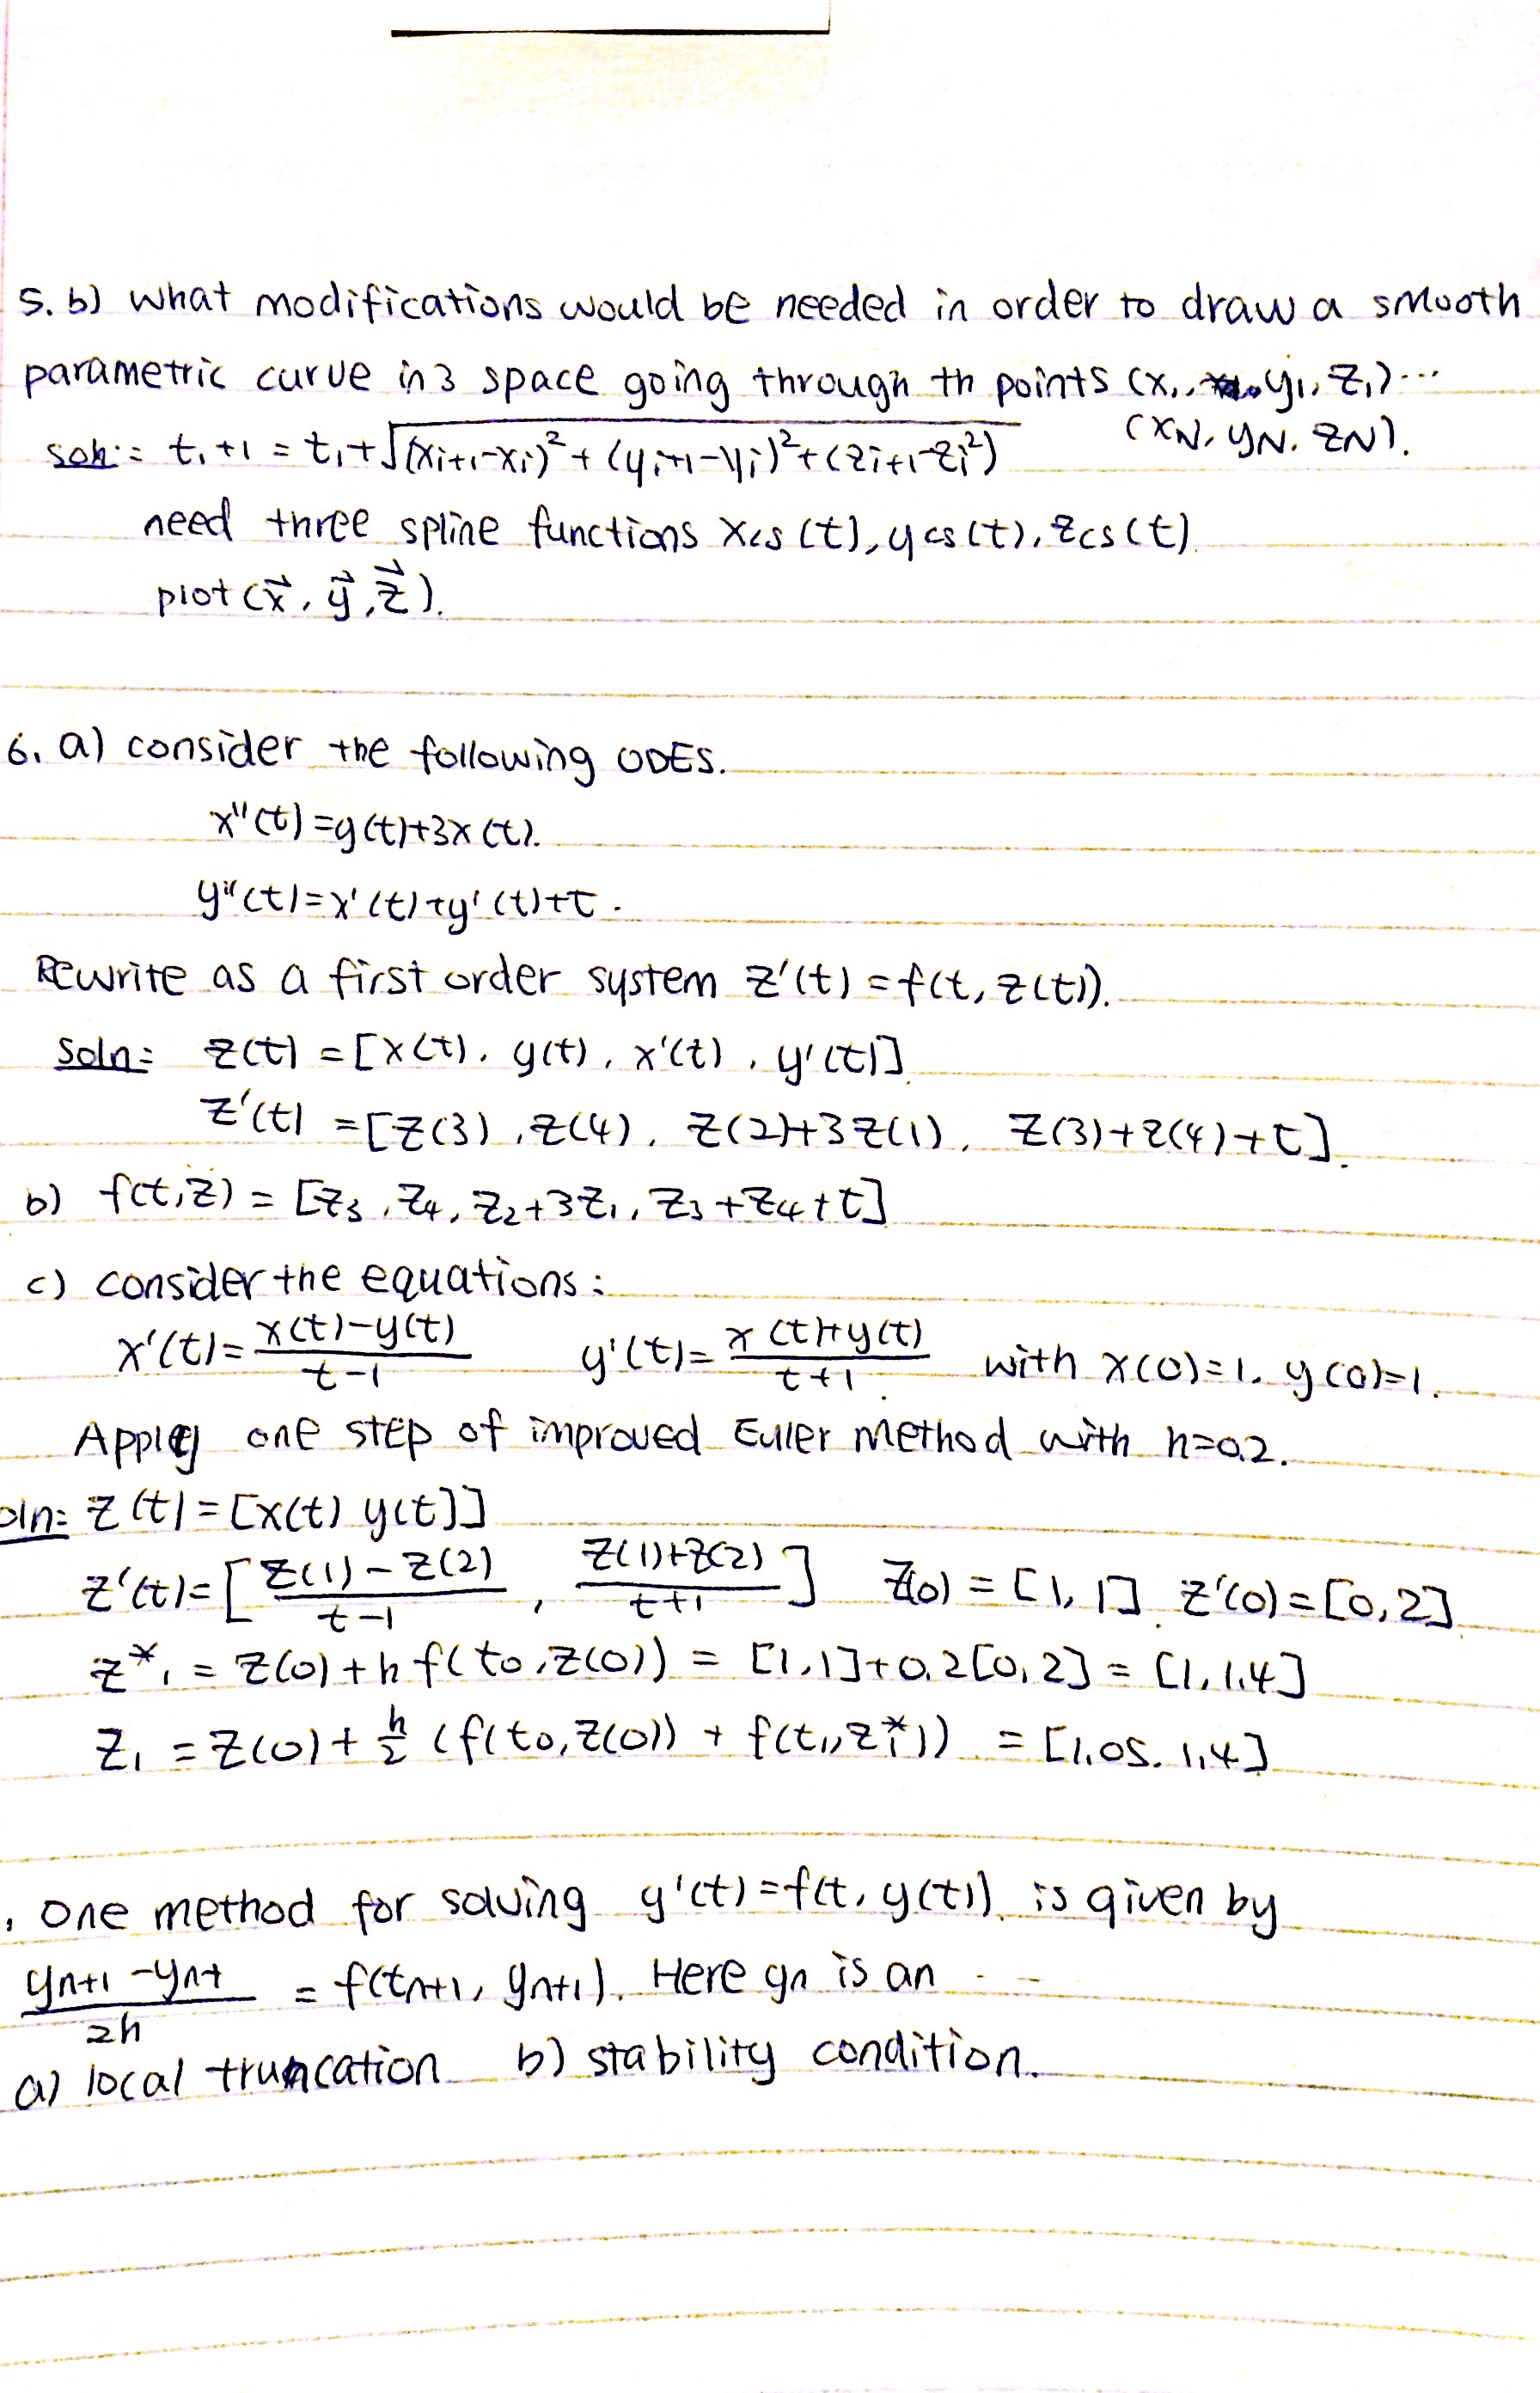 5. b) What modifications would be needed in order to draw a smooth
parametric curve in 3 space going through th points (x₁, y₁, z₁)...
(xN, yN, zN).
soln: t₁+1 = t₁+√((xi+1-xi)²+(yi+1-yi)²+(zi+1-zi²)
need three spline functions xcs(t), ycs(t), zcs(t).
plot(x⃗, y⃗, z⃗).
6. a) consider the following ODES.
x''(t)=y(t)+3x(t).
y''(t)=x'(t)+y'(t)+t.
Rewrite as a first order system z'(t)=f(t, z(t)).
Soln: z(t) = [x(t), y(t), x'(t), y'(t)]
z'(t) = [z(3), z(4), z(2)+3z(1), z(3)+z(4)+t].
b) f(t,z) = [z₃, z₄, z₂+3z₁, z₃+z₄+t]
c) consider the equations:
x'(t)= x(t)-y(t) / t-1 y'(t)= x(t)+y(t) / t+1 with x(0)=1. y(0)=1.
Apply one step of improved Euler method with h=0.2.
oln: z(t)=[x(t) y(t)]
z'(t)=[ z(1)-z(2) / t-1 , z(1)+z(2) / t+1 ] z(0) = [1, 1] z'(0)=[0,2]
z*₁ = z(0)+hf(t₀,z(0)) = [1,1]+0.2[0,2] = [1,1.4]
z₁ = z(0)+ h/2 (f(t₀,z(0)) + f(t₁,z₁*)) = [1.05. 1.4]
, One method for solving y'(t)=f(t, y(t)) is given by
yn+1 -yn+ / 2h = f(tn+1, yn+1). Here yn is an ---
a) local truncation b) stability condition.